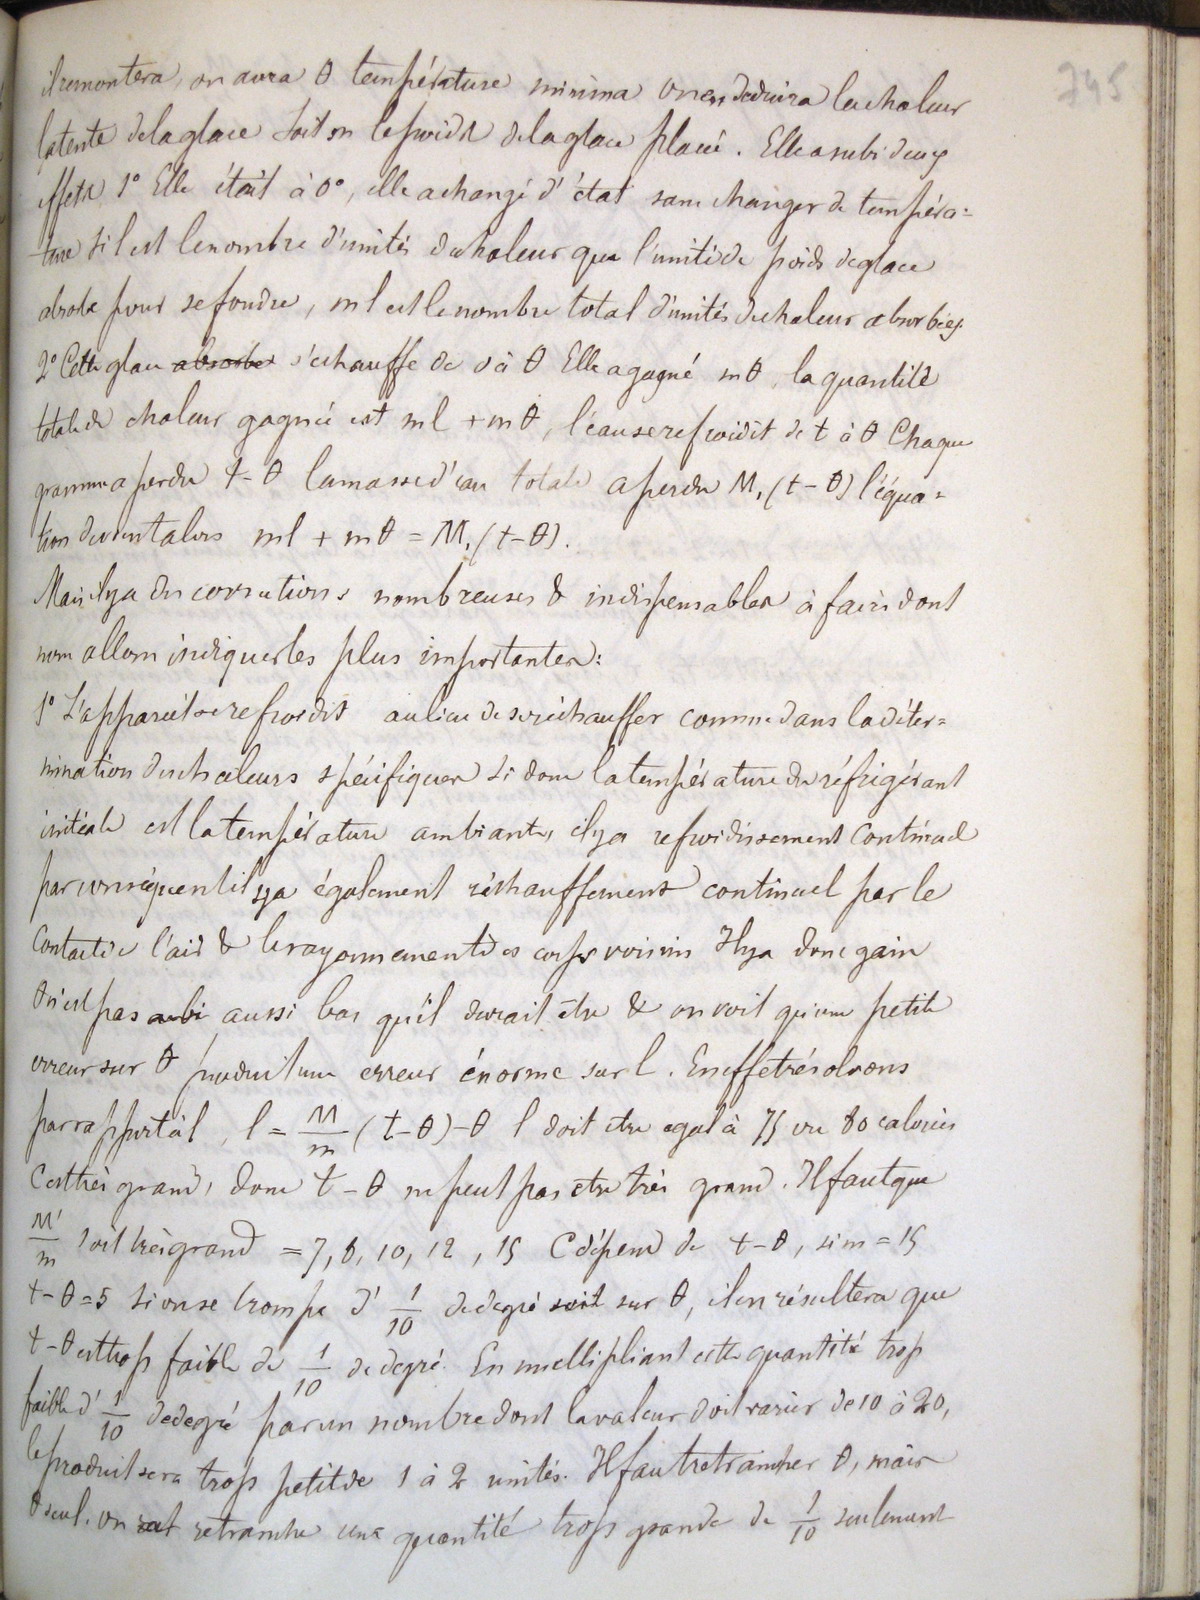 745
il remontera, on aura θ température minima on en déduira la chaleur
latente de la glace Soit m le poids de la glace placée. Elle a subi deux
effets 1° Elle était à 0°, elle a changé d'état sans changer de tempéra=
ture Si l est le nombre d'unités de chaleur que l'unité de poids de glace
absorbe pour se fondre, ml est le nombre total d'unités de chaleur absorbées.
2° Cette glace absorbe s'échauffe de 0 à θ Elle a gagné mθ, la quantité
totale de chaleur gagnée est ml + mθ, l'eau se refroidit de t à θ Chaque
gramme a perdu t-θ la masse d'eau totale a perdu M,(t-θ) l'équa=
tion devient alors ml + mθ = M,(t-θ).
Mais il y a des corrections nombreuses & indispensables à faire dont
nous allons indiquer les plus importantes:
1° L'appareil se refroidit au lieu de se réchauffer comme dans la déter=
mination des chaleurs spécifiques Si donc la température du réfrigérant
initiale est la température ambiante, il y a refroidissement continuel
par conséquent il y a également réchauffement continuel par le
contact de l'air & le rayonnement des corps voisins Il y a donc gain
θ n'est pas aussi bas qu'il devrait être & on voit qu'une petite
erreur sur θ produit une erreur énorme sur l. En effet résolvons
par rapport à l, l = M/m (t-θ)-θ l doit être égal à 75 ou 80 calories
C'est très grand, donc t-θ ne peut pas être très grand. Il faut que
M'/m soit très grand = 7, 8, 10, 12, 15 Ç dépend de t-θ, si m = 15
t-θ=5 Si on se trompe d' 1/10 de degré soit sur θ, il en résultera que
t-θ est trop faible de 1/10 de degré. En multipliant cette quantité trop
faible d' 1/10 de degré par un nombre dont la valeur doit varier de 10 à 20,
le produit sera trop petit de 1 à 2 unités. Il faut retrancher θ, mais
θ seul. on retranche une quantité trop grande de 1/10 seulement